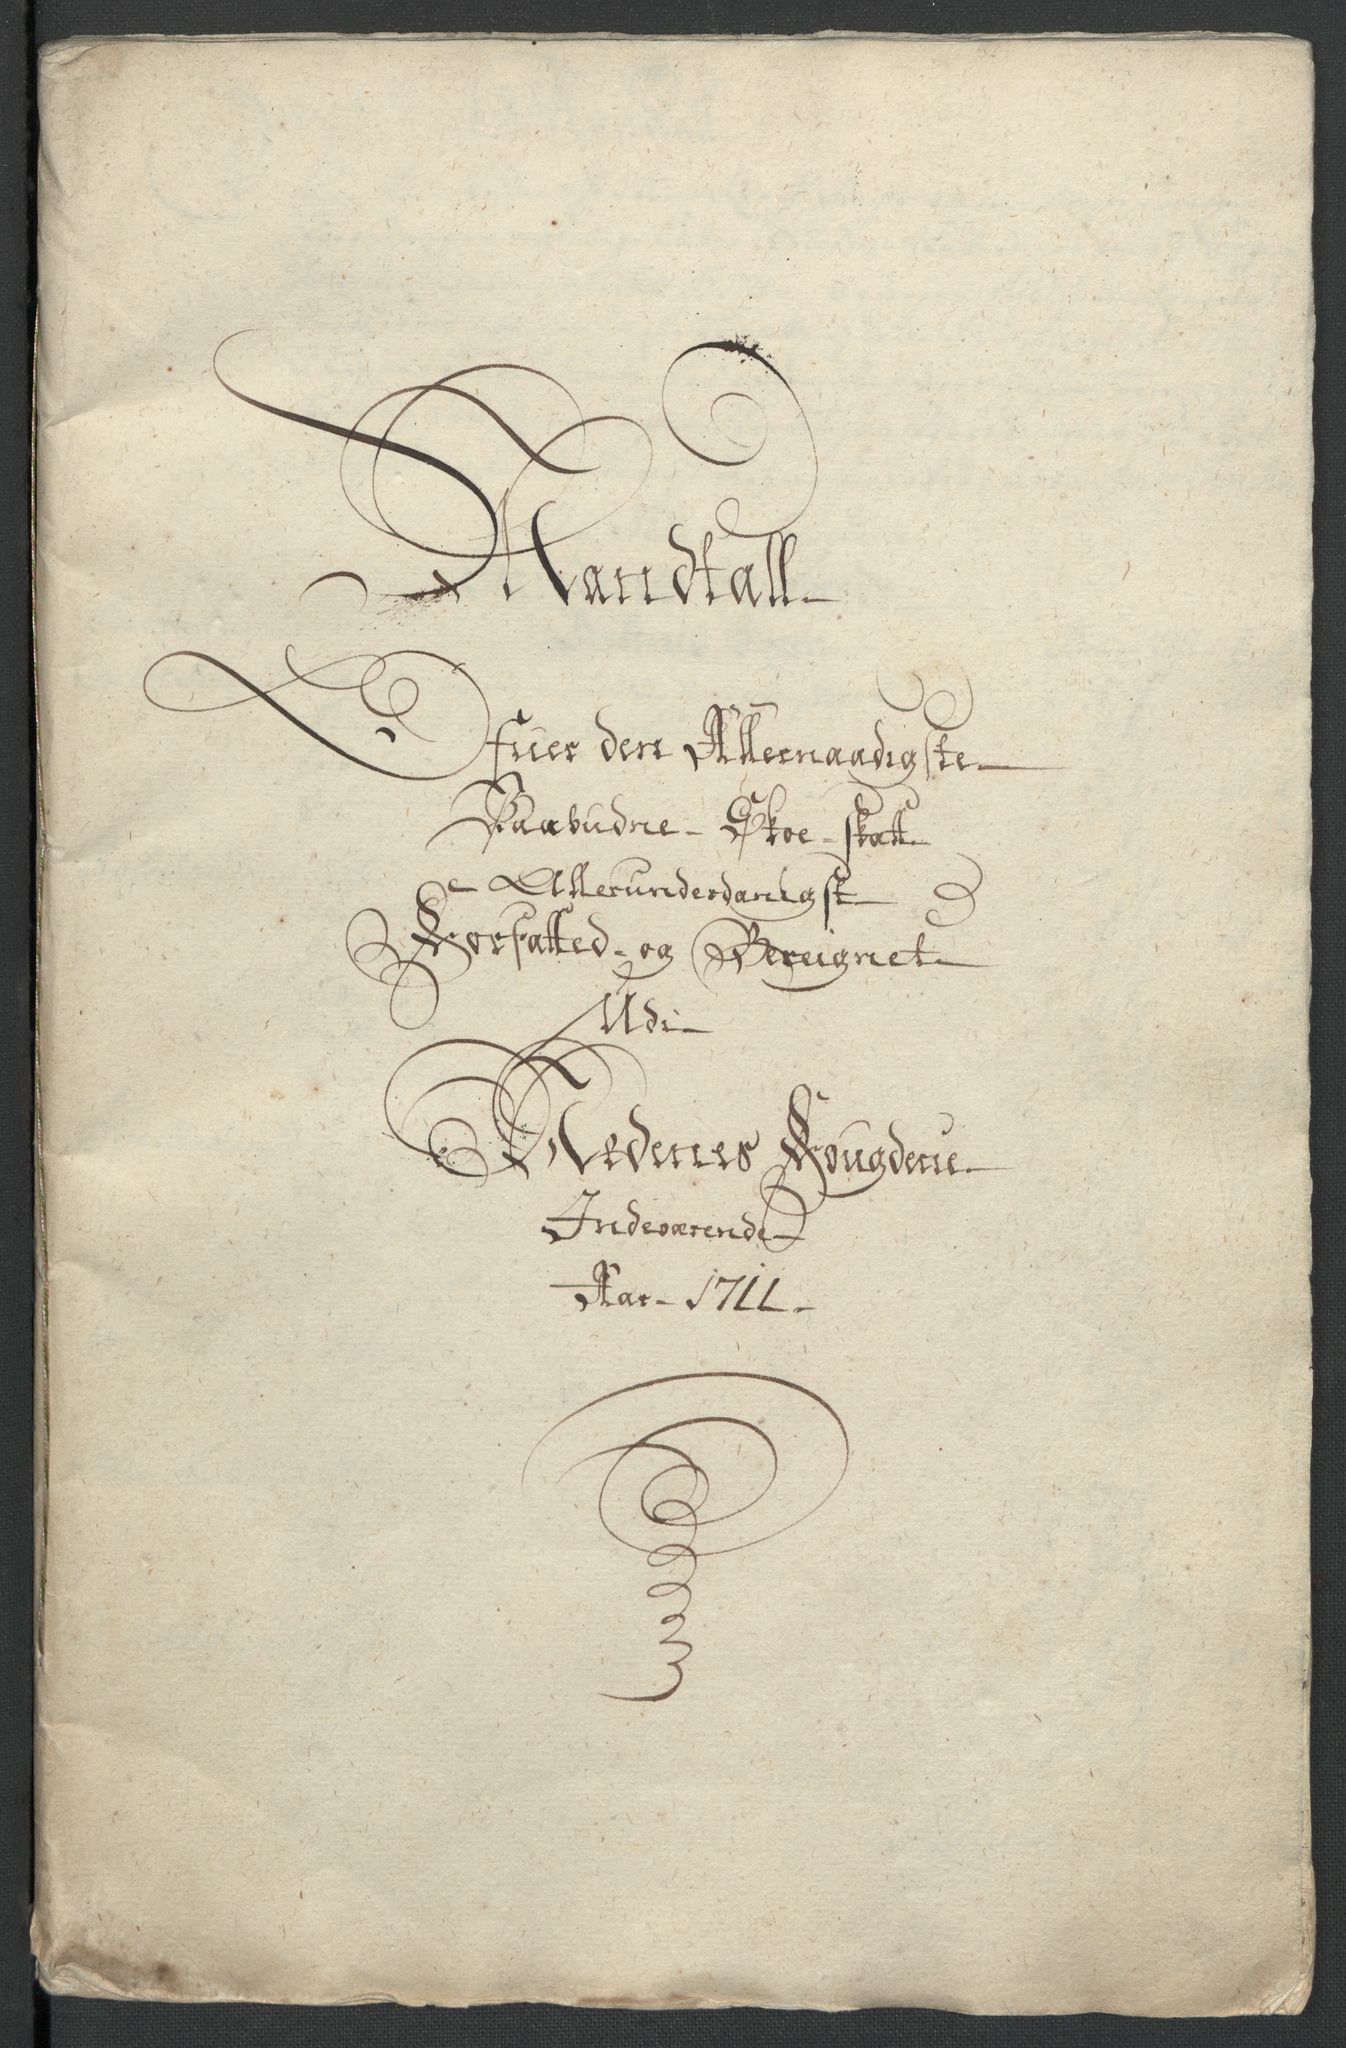 Mandtall
Ofuer den Allernaadigste
Paabudne Skoe-skatt
Allerunderdanigst
Forfatted og Bereignet
Udi
Nedenes Fougderie
Indeværende
Aar 1711